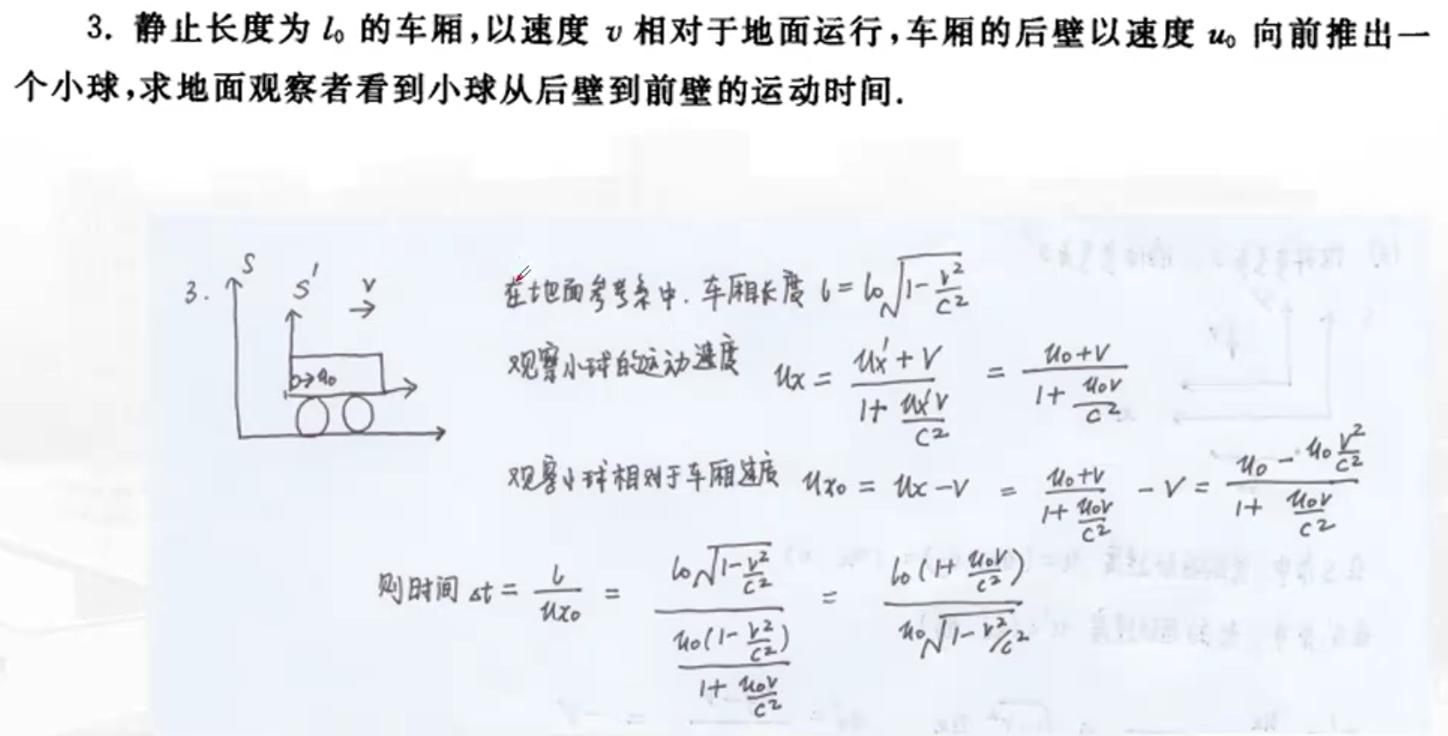 3. 静止长度为 l₀ 的车厢,以速度 v 相对于地面运行,车厢的后壁以速度 u₀ 向前推出一
个小球,求地面观察者看到小球从后壁到前壁的运动时间.
3.
S
S'
v
u₀
在地面参考系中. 车厢长度 l = l₀√(1-v²/c²)
观察小球的运动速度 ux = (ux'+v)/(1+ux'v/c²) = (u₀+v)/(1+u₀v/c²)
观察小球相对于车厢速度 ux₀ = ux-v = (u₀+v)/(1+u₀v/c²) - v = (u₀-u₀v²/c²)/(1+u₀v/c²)
则时间 Δt = l/ux₀ = l₀√(1-v²/c²)/(u₀(1-v²/c²)/(1+u₀v/c²)) = l₀(1+u₀v/c²)/(u₀√(1-v²/c²))